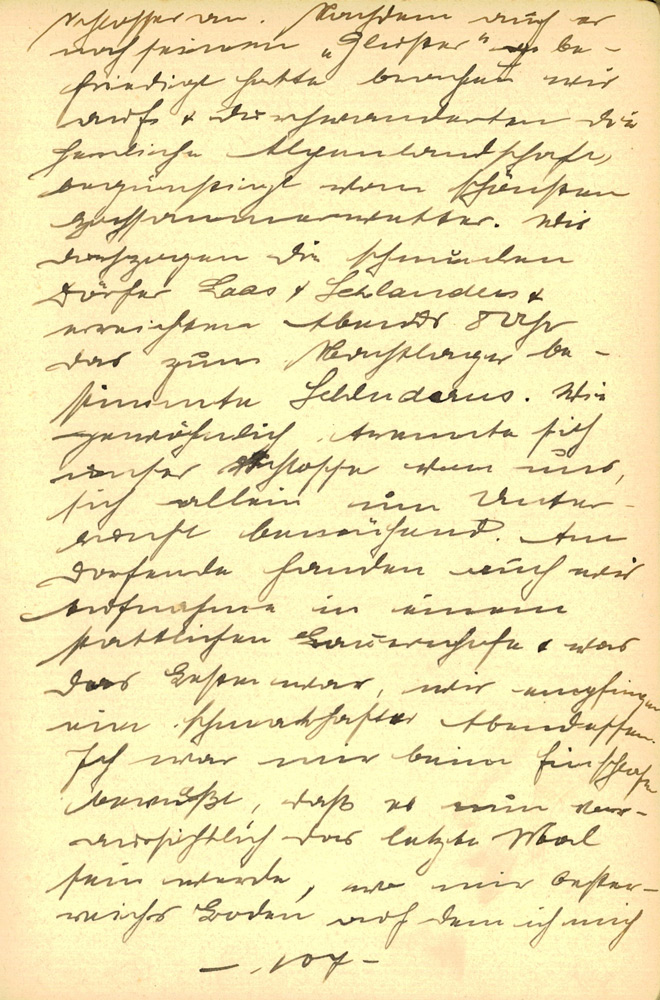 Schlosser an. Nachdem auch er
noch seinen „Gluster“ be-
friedigt hatte brachen wir
auf & durchwanderten die
herrliche Alpenlandschaft,
begünstigt vom schönsten
Hochsommerwetter. Wir
durchzogen die schmucken
Dörfer Laas & Schlanders &
erreichten Abends 8 Uhr
das zum Nachtlager be-
stimmte Schluderns. Wie
gewöhnlich trennte sich
unser Schlosser von uns,
sich allein um Unter-
kunft bemühend. Am
Dorfende fanden auch wir
Aufnahme in einem
stattlichen Bauernhofe & was
das Beste war, wir empfingen
ein schmackhaftes Abendessen.
Ich war mir beim Einschlafen
bewußt, daß es nun vor-
aussichtlich das letzte Mal
sein werde, wo mir Oester-
reichs Boden auf dem ich mich
- 107 -